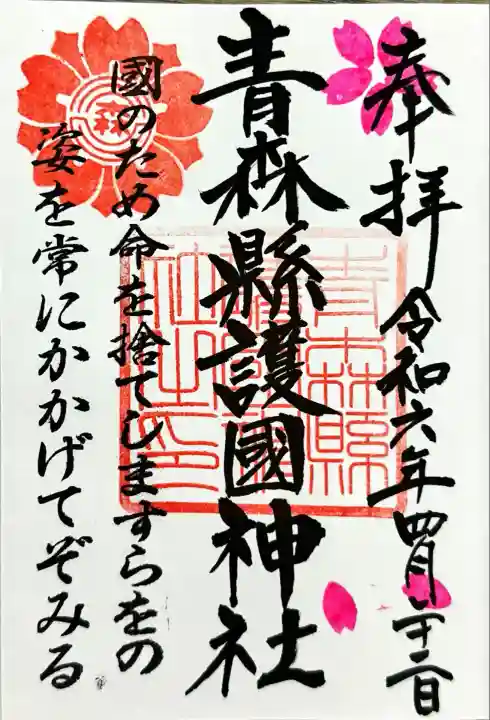 奉拝 令和六年四月二十二日
青森縣護國神社
國のため命を捨てしますらをの
姿を常にかかげてぞみる
森
青森縣
護國神
社之印